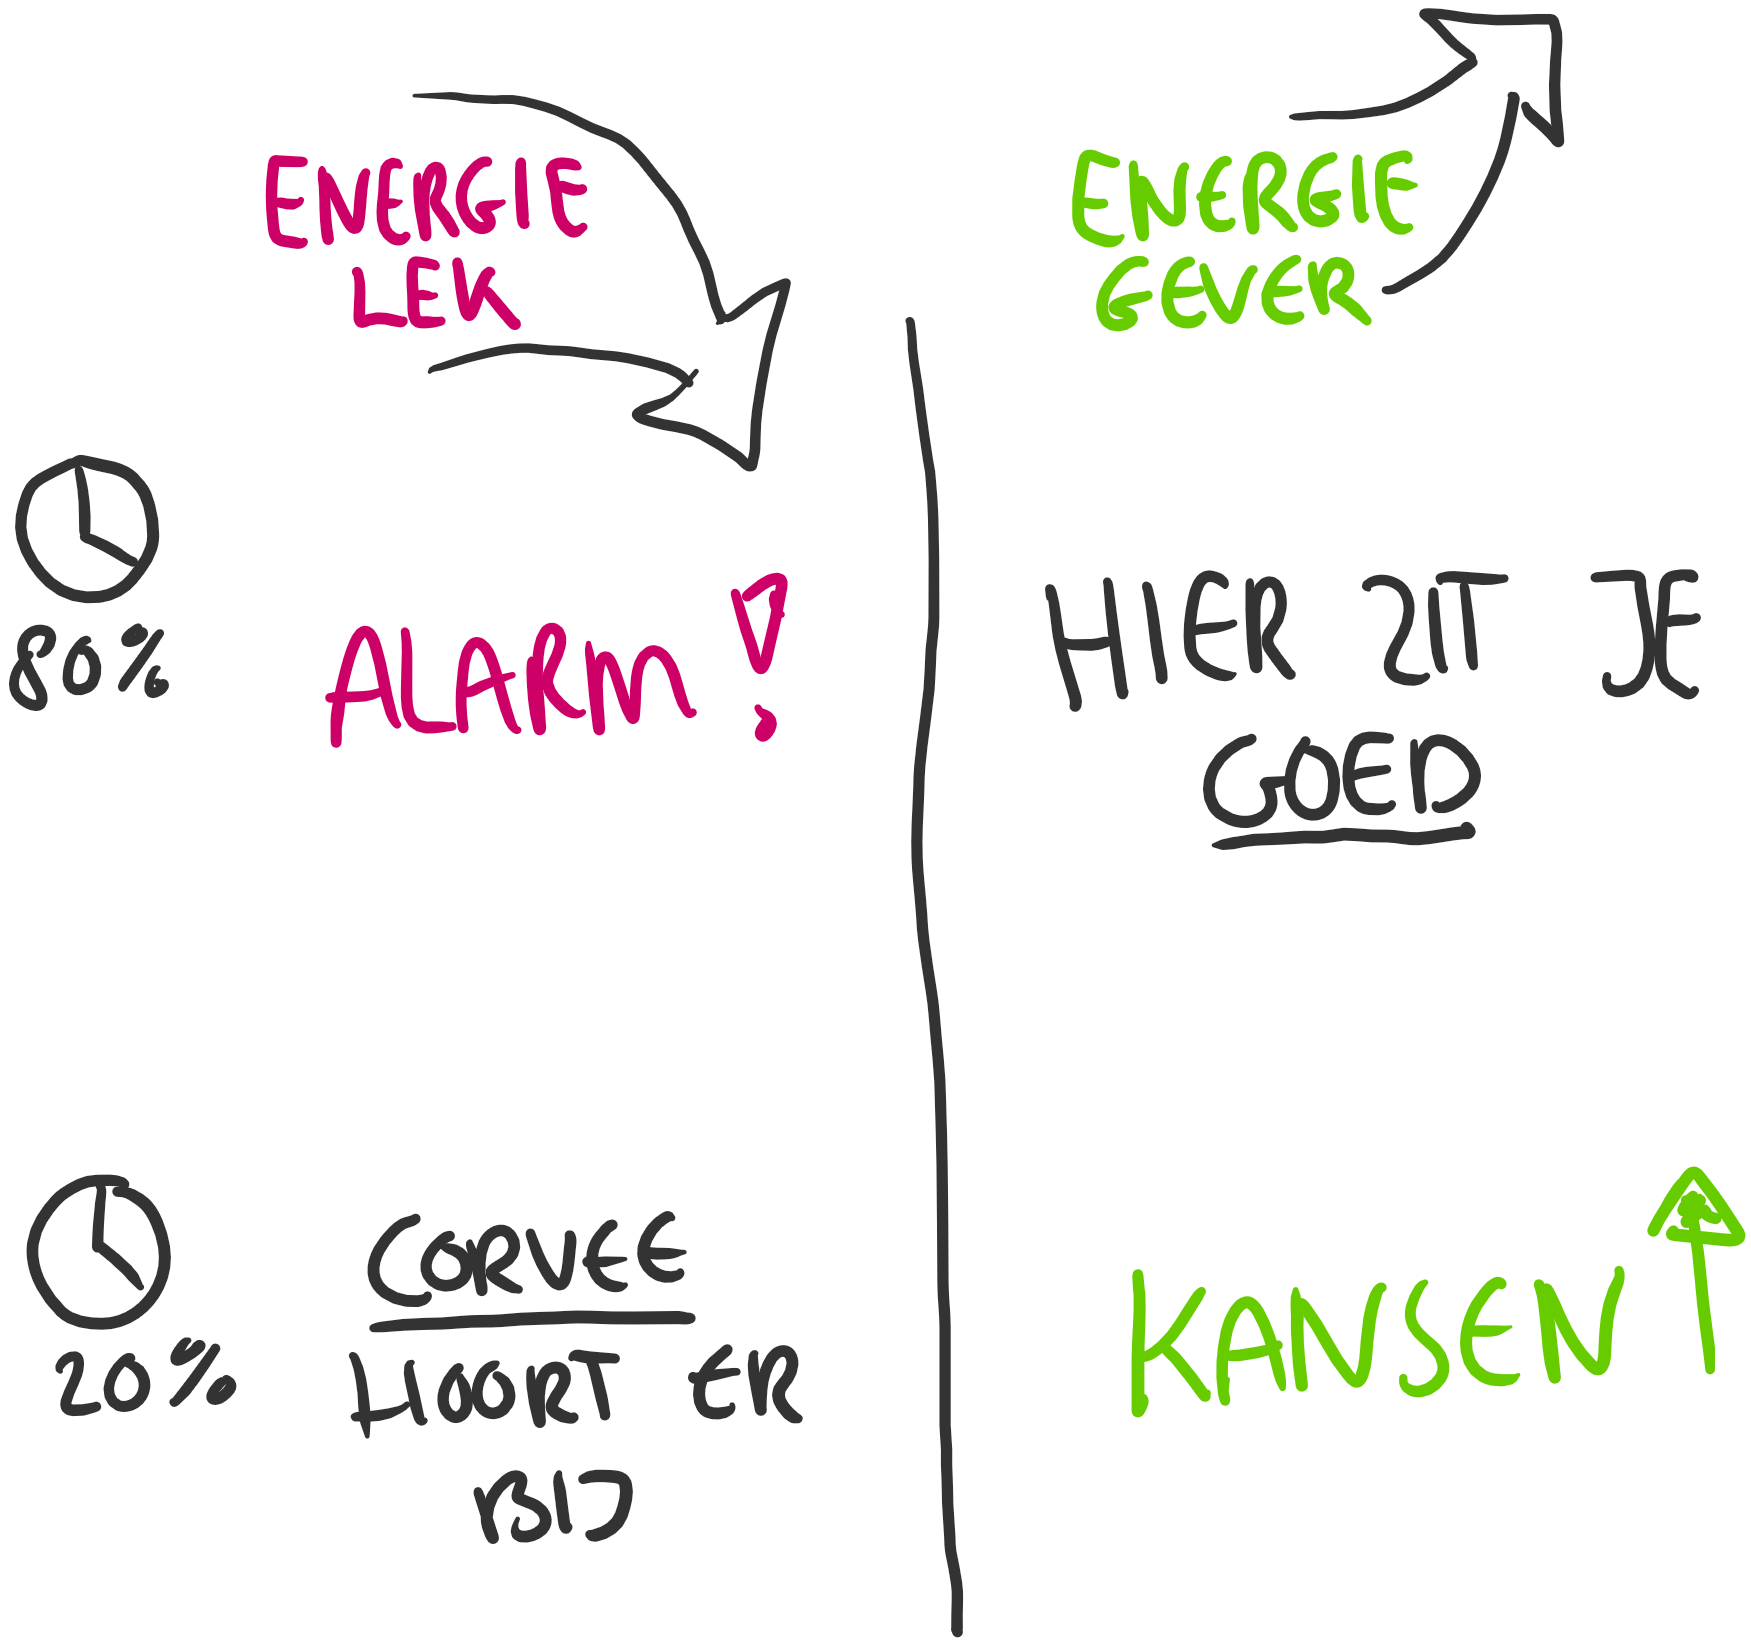 ENERGIE
LEK
ENERGIE
GEVER
80%
ALARM!
HIER ZIT JE
GOED
20%
CORVEE
HOORT ER
BIJ
KANSEN